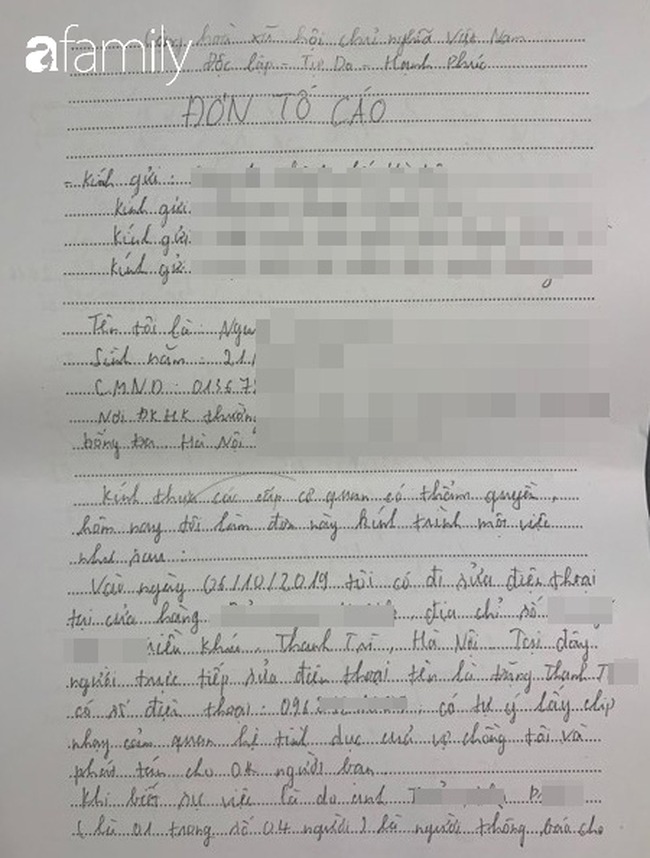 afamily
Cộng hoà xã hội chủ nghĩa Việt Nam
Độc lập - Tự Do - Hạnh Phúc
ĐƠN TỐ CÁO
- Kính gửi:
Kính gửi
Kính gửi
Kính gửi
Tên tôi là: Nguy
Sinh năm: 21.
C.M.N.D: 01367
Nơi ĐKHK thường
Đống Đa Hà Nội
Kính thưa các cấp cơ quan có thẩm quyền,
hôm nay tôi làm đơn này kính trình một việc
như sau:
Vào ngày 06/10/2019 tôi có đi sửa điện thoại
tại cửa hàng địa chỉ số
Thanh Trì, Hà Nội. Tại đây
người trực tiếp sửa điện thoại tên là Thanh T
có số điện thoại: 096 có tự ý lấy clip
nhạy cảm quan hệ tình dục của vợ chồng tôi và
phát tán cho 04 người bạn
Khi biết sự việc là do anh T P
(là 01 trong số 04 người) là người thông báo cho